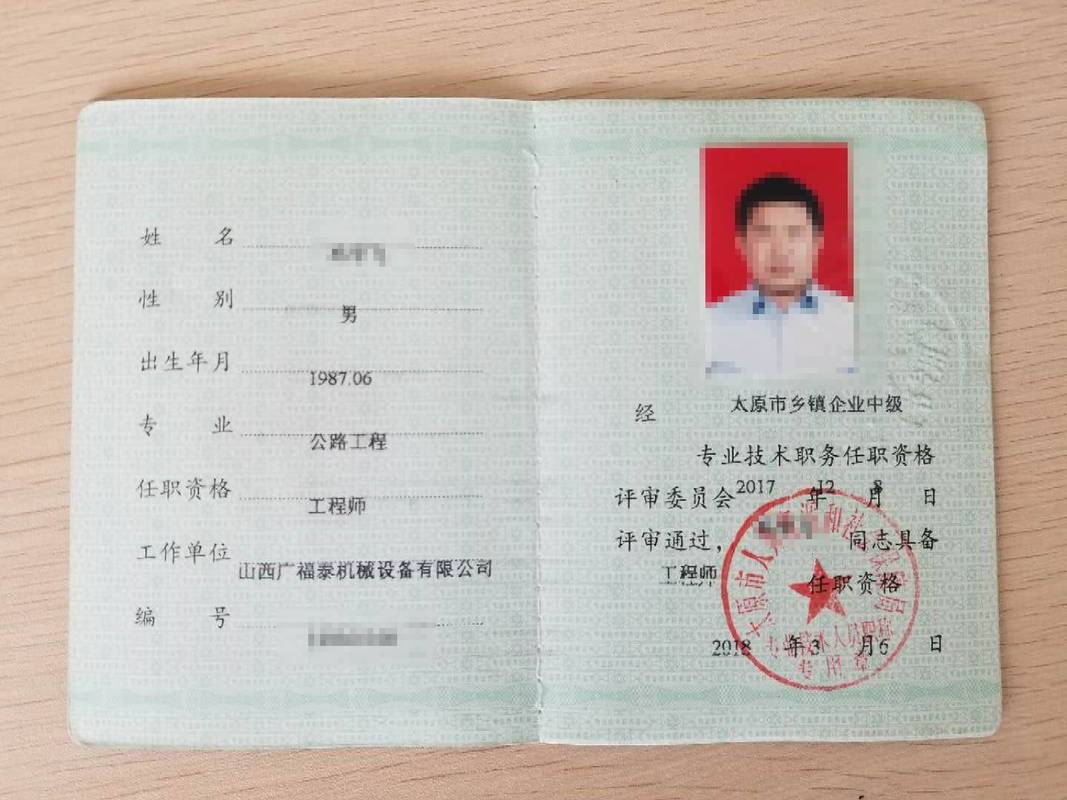 姓 名
性 别 男
出生年月 1987.06
专 业 公路工程
任职资格 工程师
工作单位 山西广福泰机械设备有限公司
编 号
经 太原市乡镇企业中级
专业技术职务任职资格
评审委员会 2017 年 12 月 8 日
评审通过， 同志具备
工程师 任职资格
2018 年 3 月 6 日
专用章